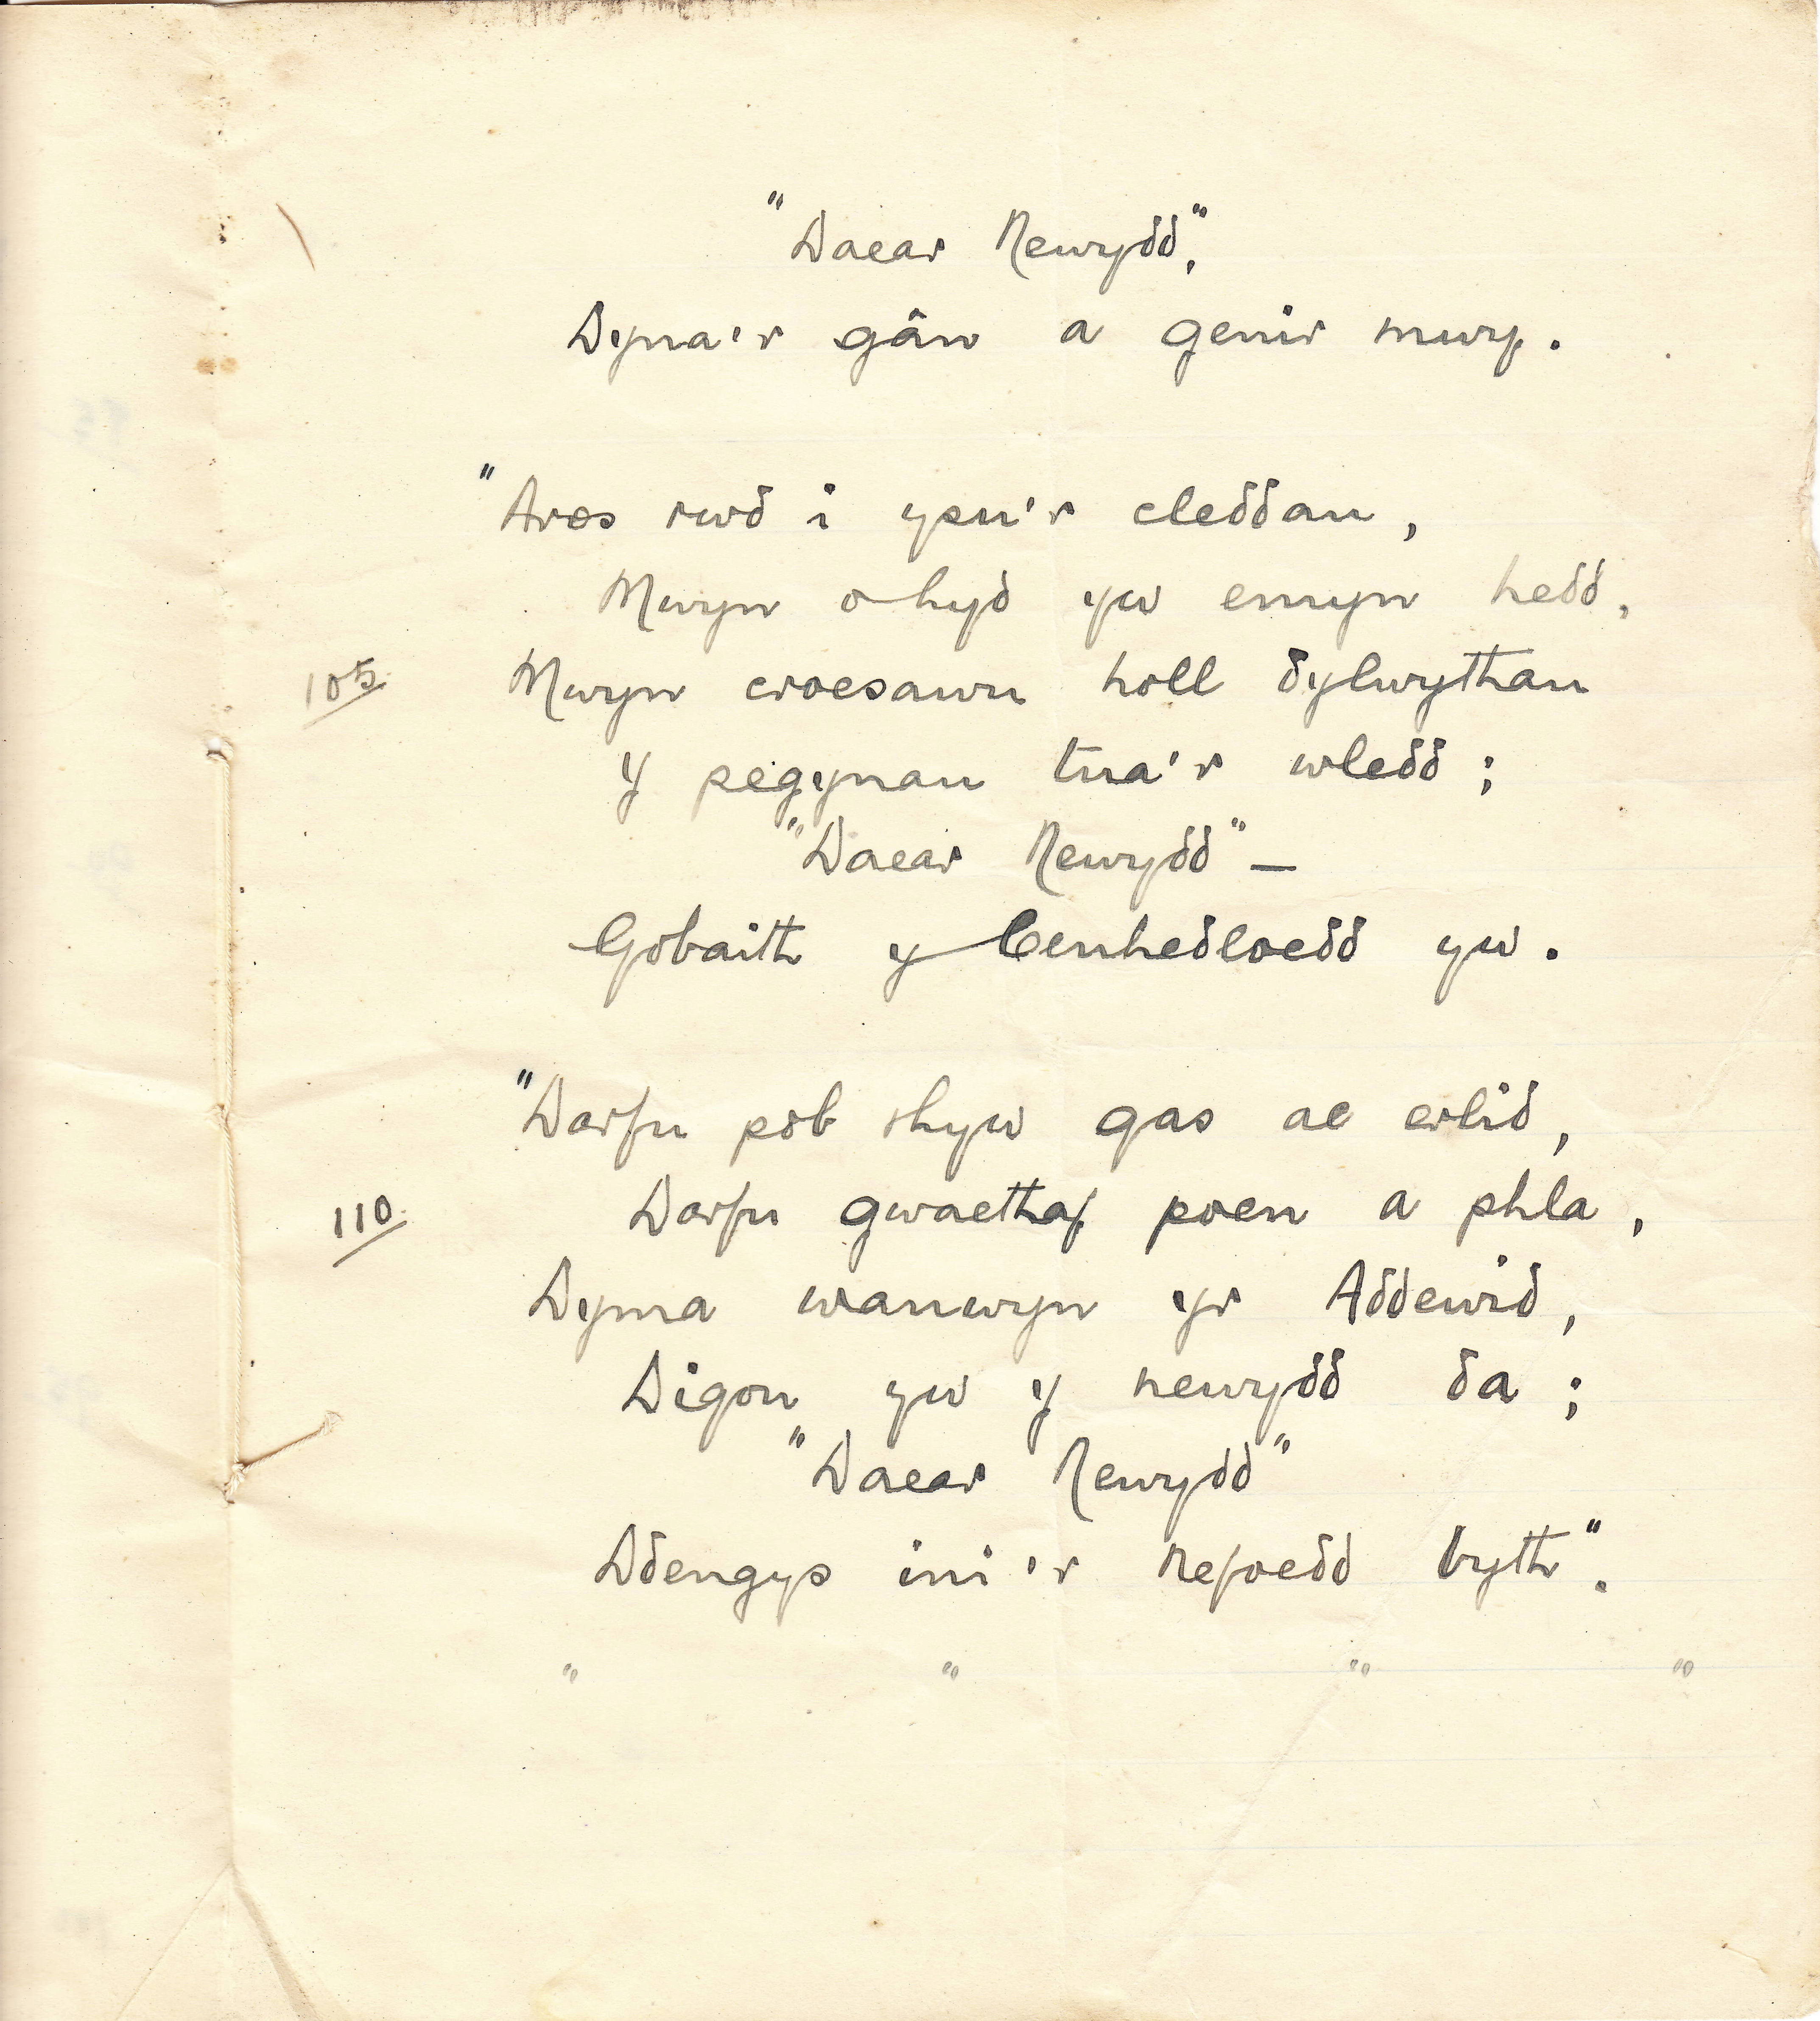 "Daear Newydd",
Dyna'r gân a genir mwy.
"Aros rwd i ysu'r cleddau,
Mwyn o hyd yw emyn hedd,
105 Mwyn croesawu holl dylwythau
Y pegynau tua'r wledd;
"Daear Newydd" —
Gobaith y Cenhedloedd yw.
"Darfu pob rhyw gas ac erlid,
110. Darfu gwaethaf poen a phla,
Dyma wanwyn yr Addewid,
Digon yw y newydd da;
"Daear Newydd"
Ddengys ini'r Nefoedd byth".
" " " "